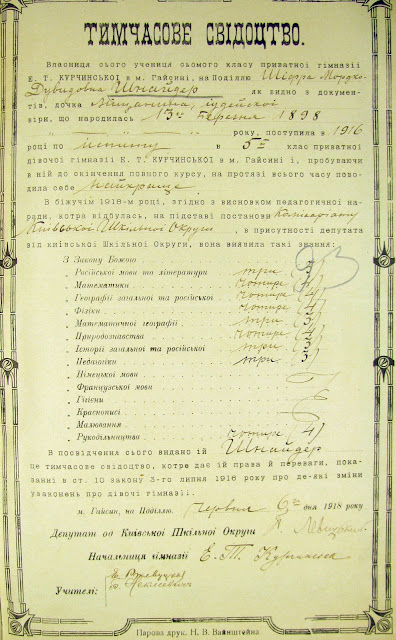 ТИМЧАСОВЕ СВІДОЦТВО.
Власниця сього учениця сьомого класу приватної гімназії
Е. Т. КУРЧИНСЬКОЇ в м. Гайсині, на Поділлю Шфра Мордко-
Дувидовна Шнайдер як видно з докумен-
тів, дочка Міщанина, іудейської
віри, що народилась 13го березня 1898
року, поступила в 1916
році по іспиту в 5й клас приватної
дівочої гімназії Е. Т. КУРЧИНСЬКОЇ в м. Гайсині і, пробуваючи
в ній до скінчення повного курсу, на протязі всього часу пово-
дила себе найкраще.
В біжучім 1918-м році, згідно з висновком педагогичної на-
ради, котра відбулась, на підставі постанови
Київської Шкільної Округи, в присутности депутата
від київської Шкільної Округи, вона виявила такі знання:
З Закону Божого
„ Російської мови та літератури три (3)
„ Математики чотирі (4)
„ Географії загальної та російської чотирі (4)
„ Фізики чотирі
„ Математичної географії три (3)
„ Природознавства чотирі (4)
„ Історії загальної та російської три (3)
„ Педагогіки три (3)
„ Німецької мови
„ Французської мови
„ Гігієни
„ Краснописі
„ Малювання
„ Рукодільництва чотирі (4)
В посвідчення сього видано їй Шнайдер
це тимчасове свідоцтво, котре дає їй права й переваги, пока-
занні в ст. 10 закону 3-го липня 1916 року про де-які зміни
узаконень про дівочі гімназії.
м. Гайсин, на Поділлю. Червня 6го дня 1918 року
Депутат од Київської Шкільної Округи
Начальниця гімназії Е. Т. Курчинська
Учителі:
Парова друк. Н. В. Вайнштейна